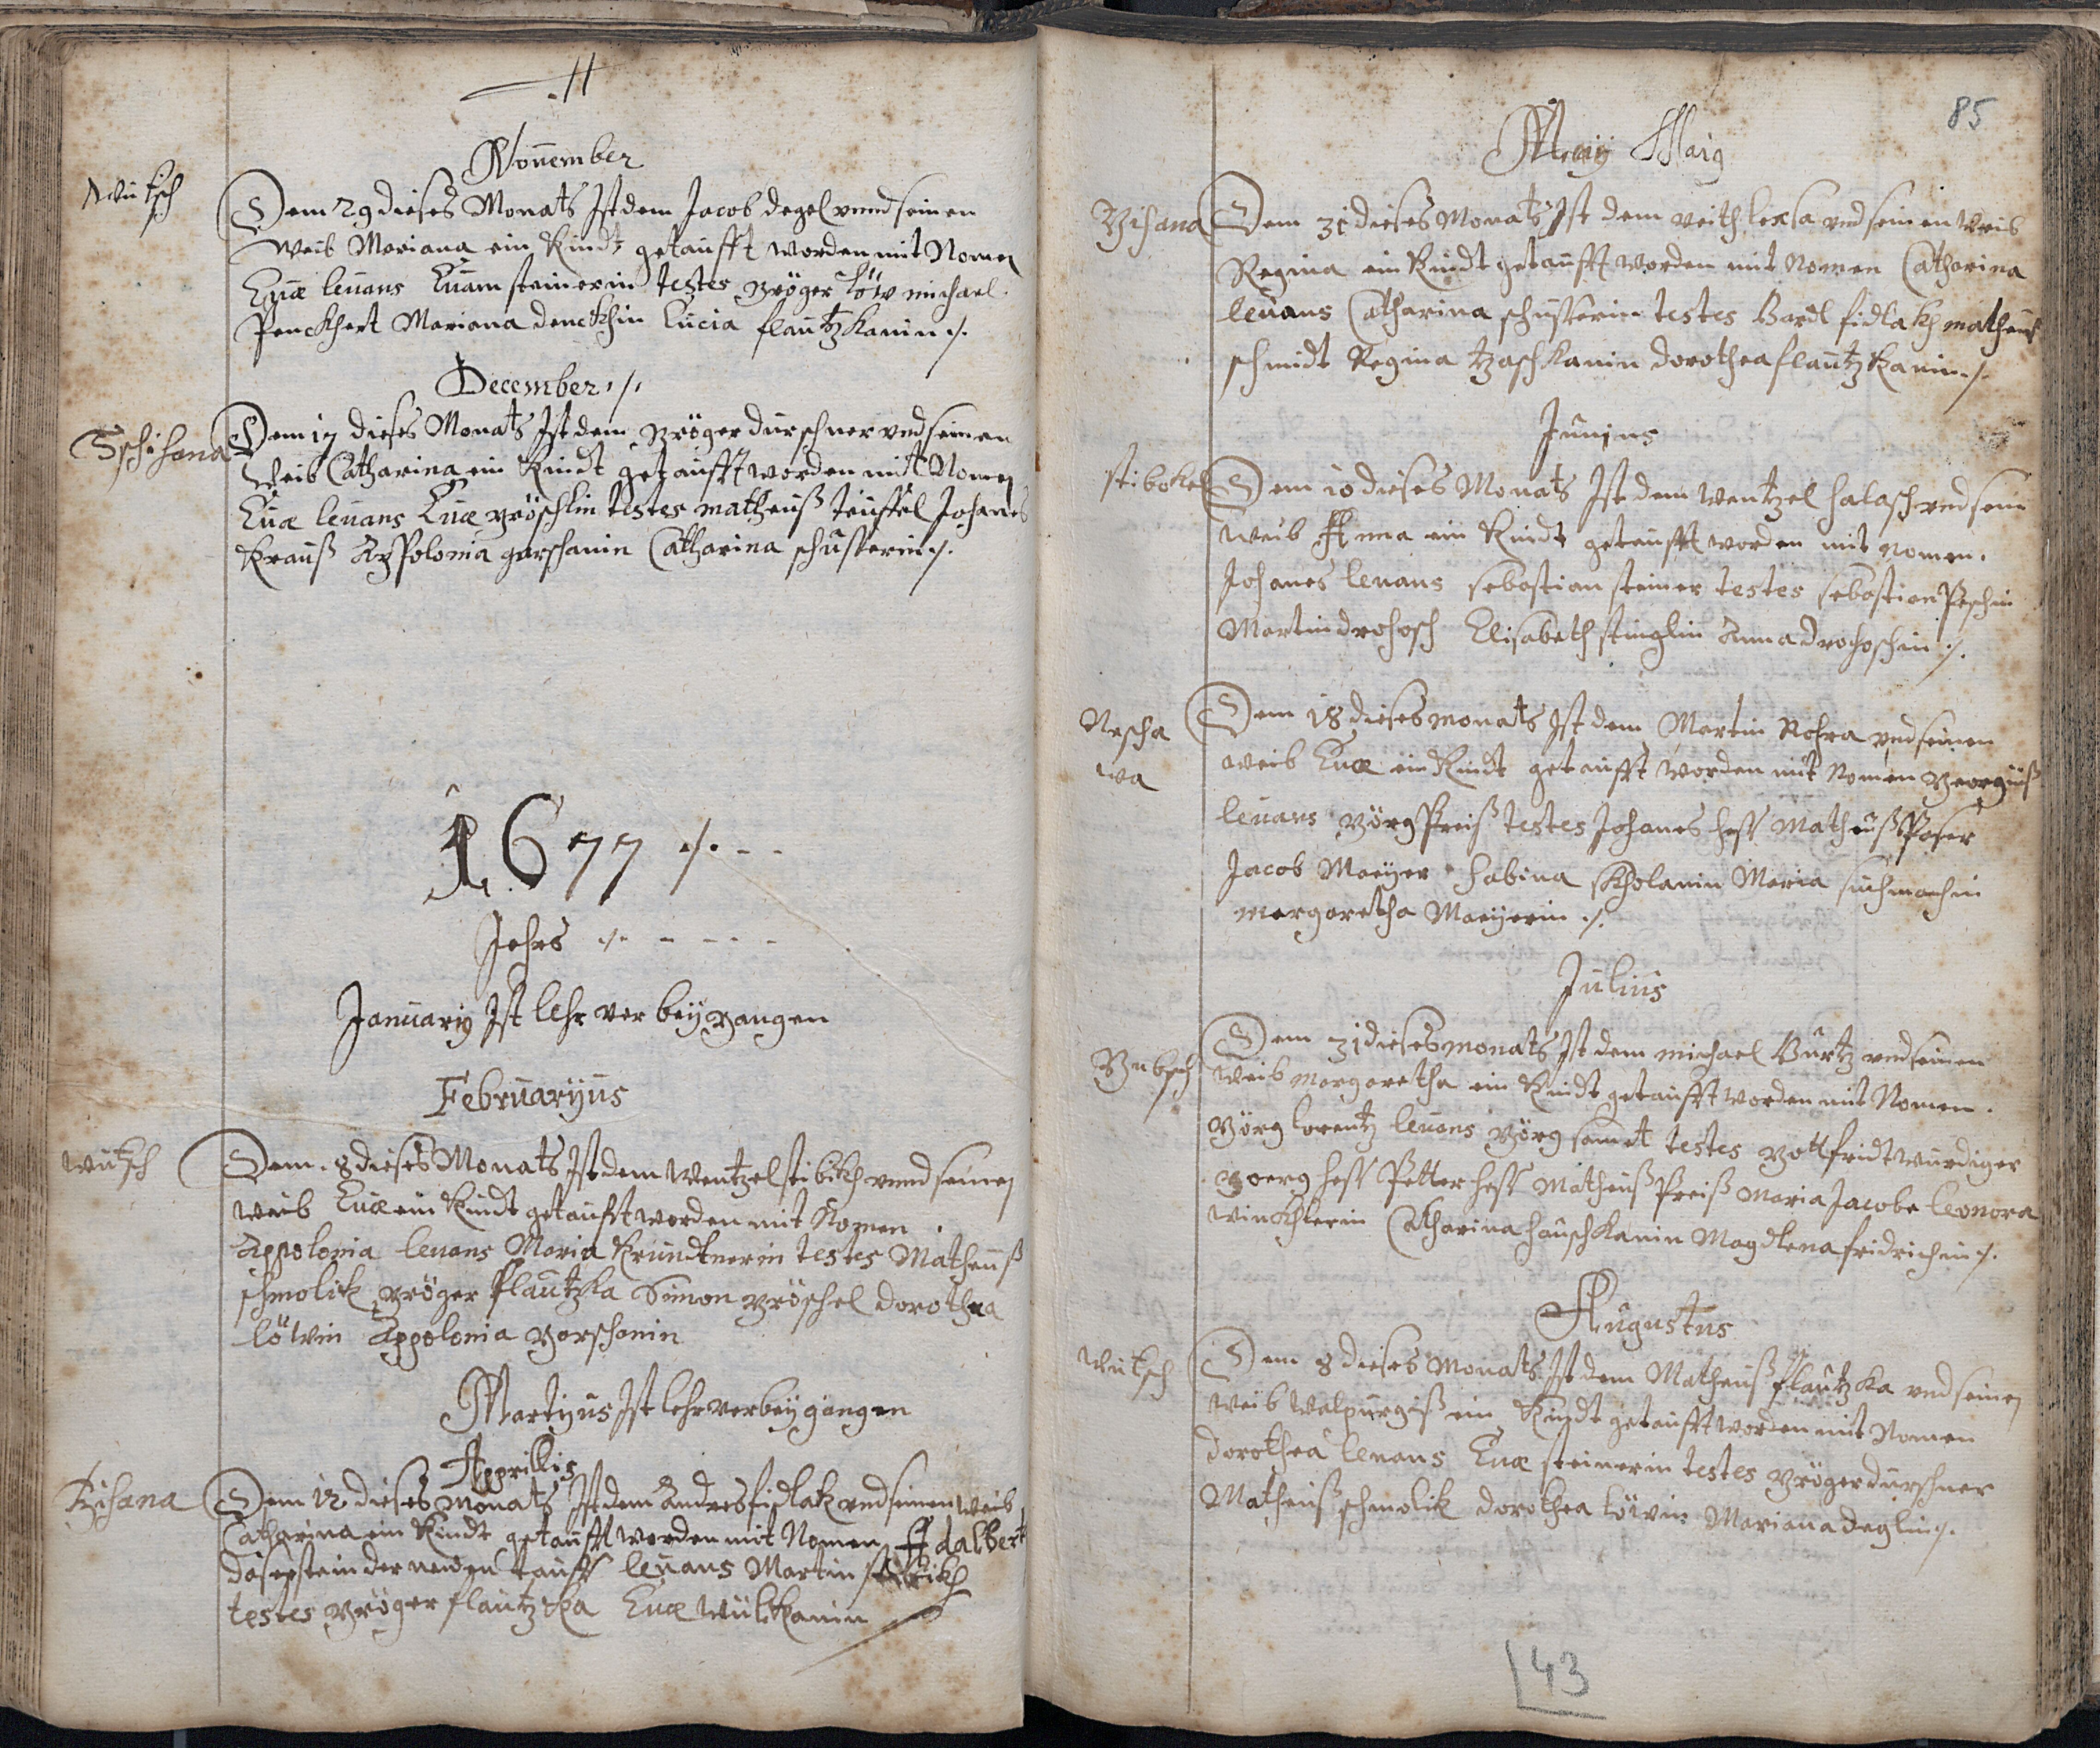 11
November
Wutsch
Dem 29 dieses Monats Ist dem Jacob degel vnnd seinen
Weib Mariana ein Kindt getaufft worden mit Namen
Euæ leuans Euam steinerin testes gröger löw michael
Penckhert Mariana denckhin Lucia flautzkanin ./.
December ./.
Tschihana
Dem 17 dieses Monats Ist dem gröger durschner vnd seinen
Weib Catharina ein Kindt getaufft worden mitt Namen
Euæ leuans Euæ gröschlin testes matheuß teuffel Johanes
Krauß Appolonia gorschanin Catharina schusterin ./.
1677 ./. - -
Jahrs ./. - - - -
January Ist lehr ver beÿ gangen
Februarÿus
Wutsch
Dem 8 dieses Monats Ist dem Wentzel stibikh vnnd seinen
Weib Euæ ein Kindt getaufft worden mit Namen
Appolonia leuans Maria Krundtnerin testes Matheuß
schmolik gröger flautzka Simon gröschel dorothea
löwin Appolonia gorschanin
Martÿus Ist lehr verbeÿ gangen
Apprillis
Zihana
Dem 12 dieses Monats Ist dem Andres fidlak vnd seinen Weib
Catharina ein Kindt getaufft worden mit Namen Adalbert
leuans Martin
testes gröger flautzka Euæ Wülkanin
85
Maÿ Maig
Zihana
Dem 31 dieses Monats Ist dem veith lexsa vnd seinen Weib
Regina ein Kindt getaufft worden mit Namen Catharina
leuans Catharina schusterin testes Bardl fidlakh matheuß
schmidt Regina tzaschkanin dorothea flautzkanin ./.
Junius
stibokel
Dem 10 dieses Monats Ist dem Wentzel halasch vnd sein
Weib Anna ein Kindt getaufft worden mit namen
Johanes leuans sebastian steiner testes sebastian Peschin
Martin drohosch Elisabeth stinglin Anna drohoschin ./.
Nescha
wa
Dem 18 dieses monats Ist dem Martin Rohra vnd seinen
weib Euæ ein Kindt getaufft worden mit Namen georgiuß
leuans görg Preiß testes Johanes heß Matheuß Poser
Jacob Maeÿer Sabina Maria
margaretha Maeÿerin ./.
Julius
Dem 31 dieses monats Ist dem michael Burtz vnd seinen
Weib margaretha ein Kindt getaufft worden mit Namen
görg lorentz leuans görg samet testes gottfridt würdiger
goerg heß Petter heß Matheuß Preiß Maria Jacobe leonora
Winckhlerin Catharina hauschkanin Magdlena fridrichin ./.
Augustus
Wutsch
Dem 8 dieses Monats Ist dem Matheuß flautzka vnd seinen
Weib Walpurgiß ein Kindt getaufft worden mit Namen
dorothea leuans Euæ steinerin testes gröger durschner
Matheuß schmolik dorothea löwin Mariana deglin ./.
43